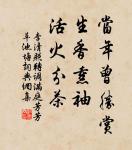 當年曾勝賞
生香熏袖
活火分茶
李清照轉調滿庭芳芳
草池塘詞典網集